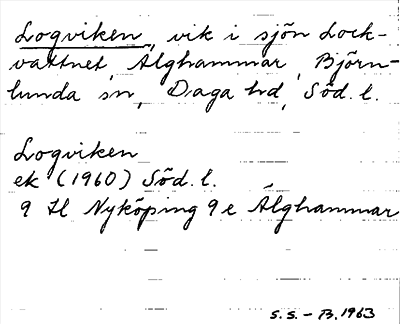 Logviken, vik i sjön Lock-
vattnet, Älghammar, Björn-
lunda sn, Daga hd, Söd. l.
Logviken
ek (1960) Söd. l.
9 H Nyköping 9 e Älghammar
S.S. - B. 1963